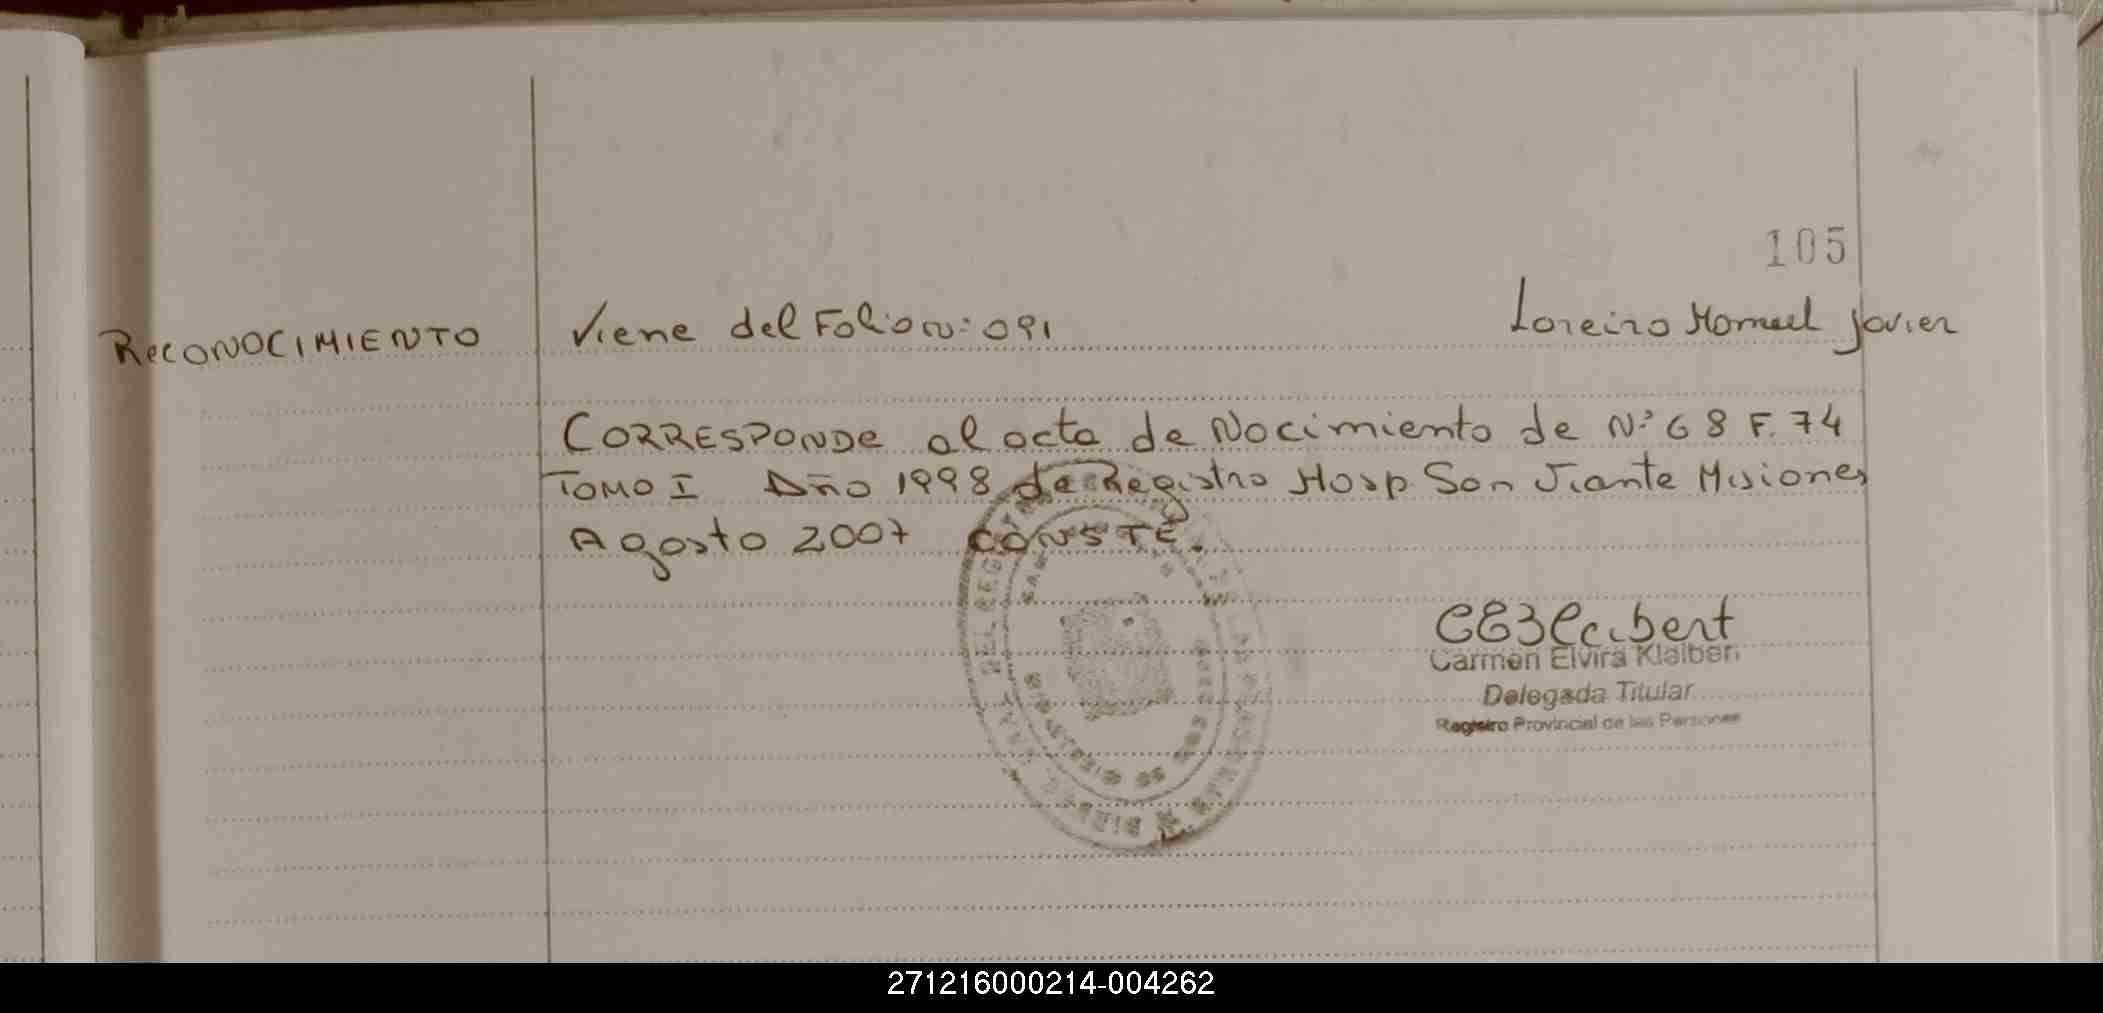 105
RECONOCIMIENTO Viene del Folio N: 091 Loreiro Manuel Javier
CORRESPONDE al acta de Nacimiento de Nº 68 F. 74
TOMO I Año 1998 de Registro Hosp. San Vicente Misiones
Agosto 2007 CONSTE.
Carmen Elvira Klaibert
Delegada Titular
Registro Provincial de las Personas
271216000214-004262